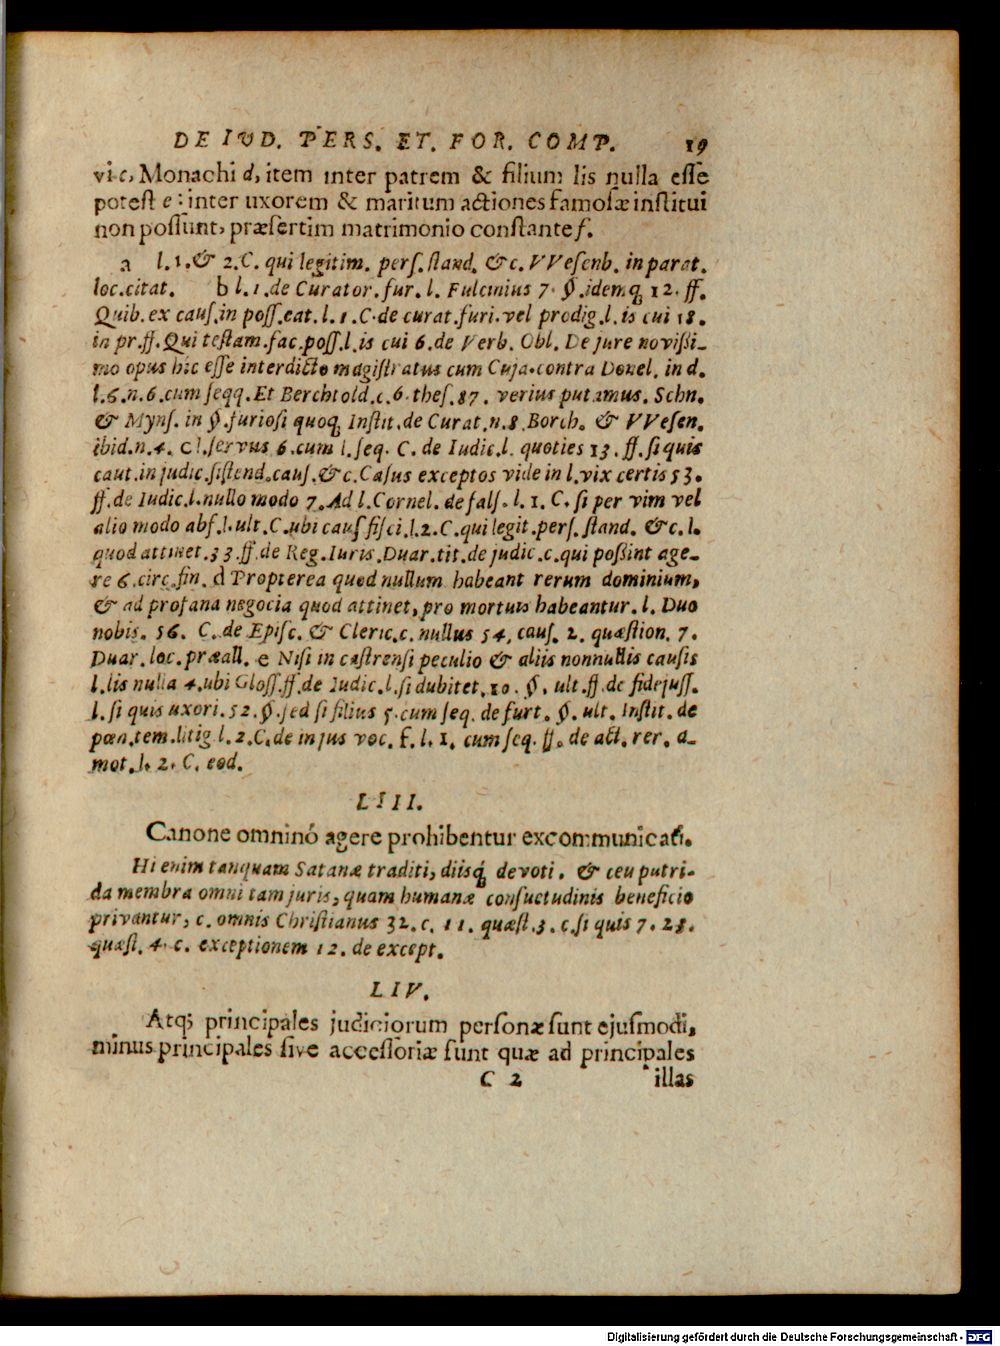 DE IUD. PERS. ET. FOR. COMP. 19
vi c, Monachi d, item inter patrem & filium lis nulla esse
potest e: inter uxorem & maritum actiones famosæ institui
non possunt, præsertim matrimonio constante f.
a l. 1. & 2. C. qui legitim. pers. stand. &c. VVesenb. in parat.
loc. citat. b l. 1. de Curator. fur. l. Fulcinius 7. §. idemq; 12. ff.
Quib. ex caus. in poss. eat. l. 1. C. de curat. furi. vel prodig. l. is cui 18.
in pr. ff. Qui testam. fac. poss. l. is cui 6. de Verb. Obl. De jure novißi-
mo opus hic esse interdicto magistratus cum Cuja. contra Donel. in d.
l. 6. n. 6. cum seqq. Et Berchtold. c. 6. thes. 87. verius putamus. Schn.
& Myns. in §. furiosi quoq; Instit. de Curat. n. 8. Borch. & VVesen.
ibid. n. 4. c l. servus 6. cum l. seq. C. de Iudic. l. quoties 13. ff. si quis
caut. in judic. sistend. caus. &c. Casus exceptos vide in l. vix certis 53.
ff. de Iudic. l. nullo modo 7. Ad l. Cornel. de fals. l. 1. C. si per vim vel
alio modo abs. l. ult. C. ubi caus fisci. l. 2. C. qui legit. pers. stand. &c. l.
quod attinet. 33. ff. de Reg. Iuris. Duar. tit. de judic. c. qui poßint age-
re 6. circ. fin. d Propterea quod nullum habeant rerum dominium,
& ad profana negocia quod attinet, pro mortuis habeantur. l. Duo
nobis. 56. C. de Episc. & Cleric. c. nullus 54. caus. 2. quæstion. 7.
Duar. loc. præall. e Nisi in castrensi peculio & aliis nonnullis causis
l. lis nulla 4. ubi Gloss. ff. de Iudic. l. si dubitet. 10. §. ult. ff. de fidejuss.
l. si quis uxori. 52. §. sed si filius 5. cum seq. de furt. §. ult. Instit. de
pœn. tem. litig l. 2. C. de in jus voc. f. l. 1. cum seq. ff. de act. rer. a-
mot. l. 2. C. eod.
LIII.
Canone omninó agere prohibentur excommunicati.
Hi enim tanquam Satanæ traditi, diisq; devoti. & ceu putri-
da membra omni tam juris, quam humanæ consuetudinis beneficio
privantur, c. omnis Christianus 32. c. 11. quæst. 3. c. si quis 7. 23.
quæst. 4. c. exceptionem 12. de except.
LIV.
Atq; principales judiciorum personæ sunt ejusmodi,
minus principales sive accessoriæ sunt quæ ad principales
C 2 illas
Digitalisierung gefördert durch die Deutsche Forschungsgemeinschaft - DFG